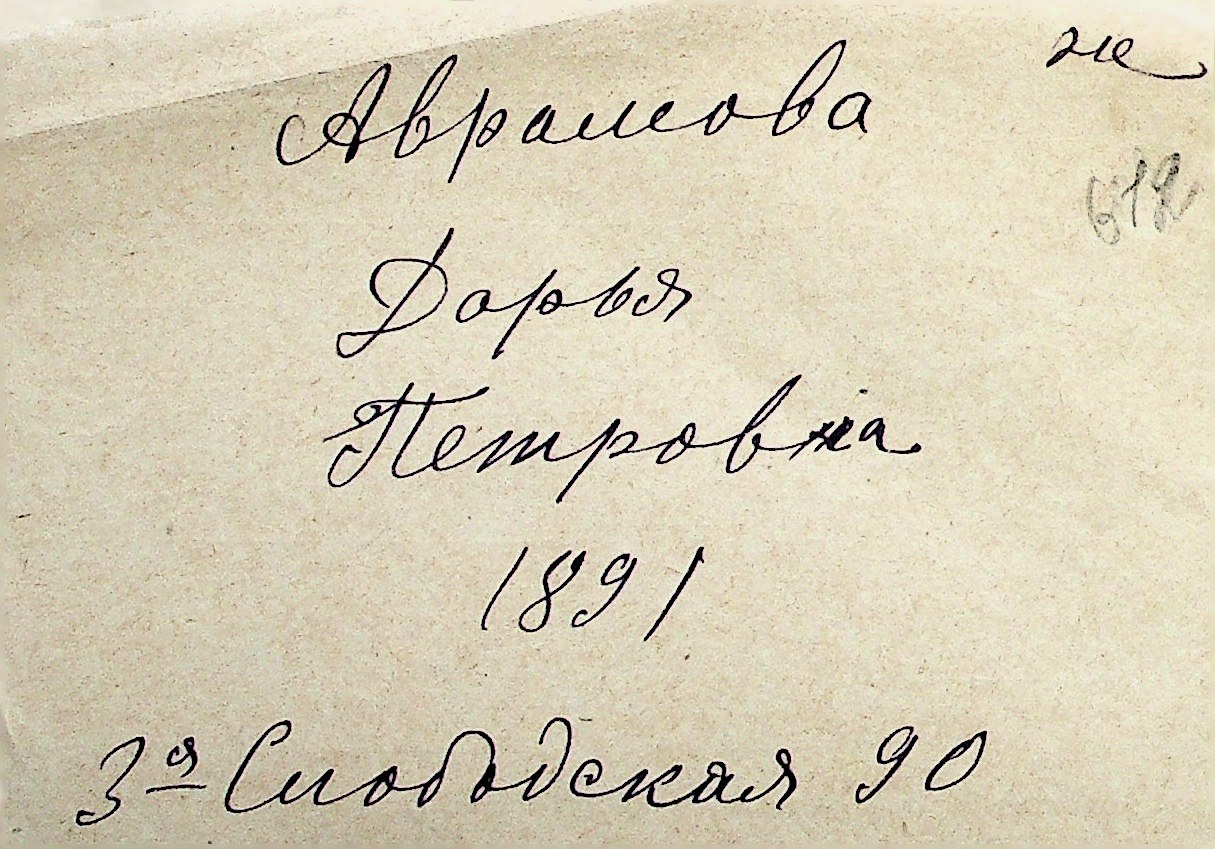 ж
Аврамова
Дарья
Петровна
1891
3я Слободская 90